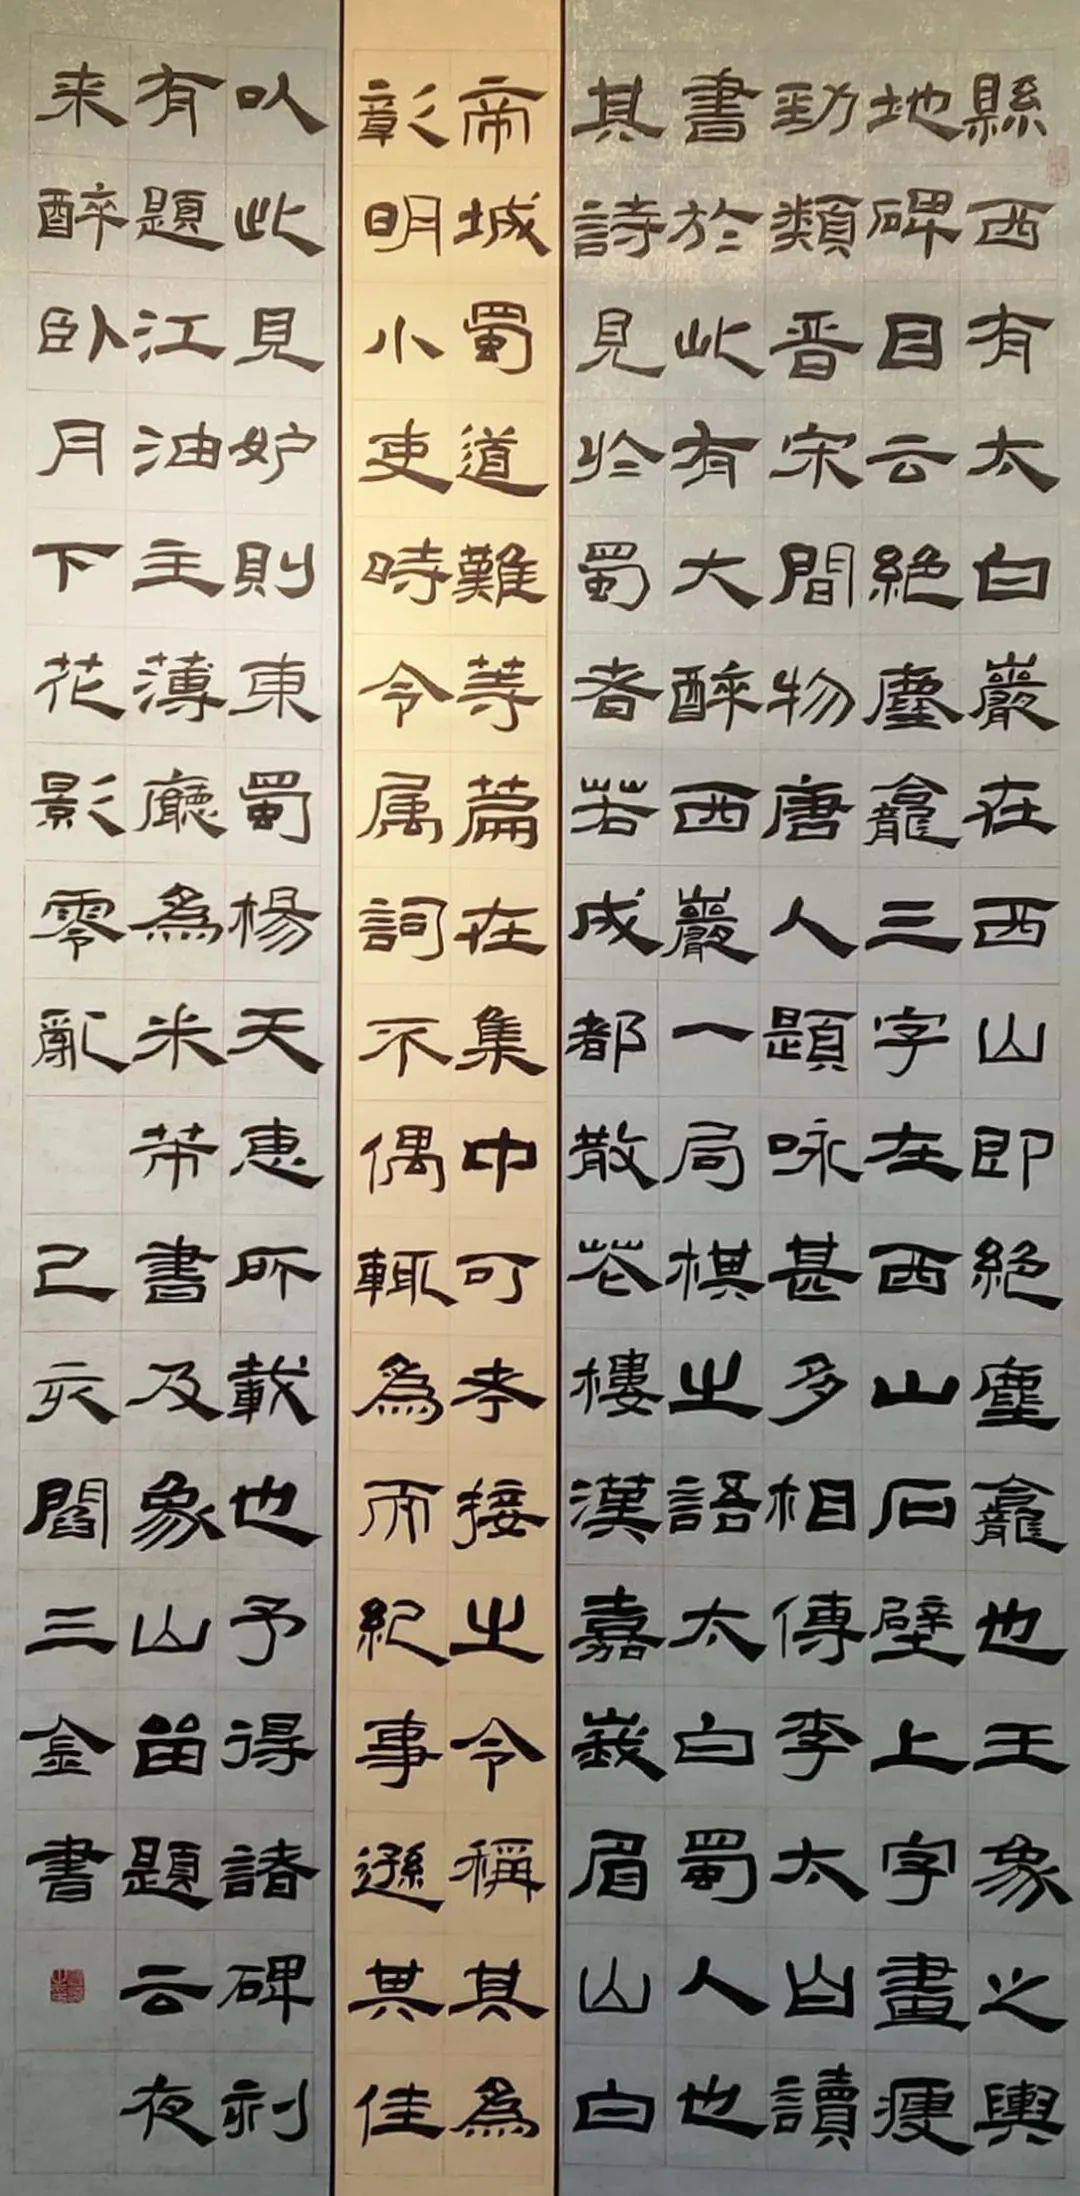 縣西有太白巖在西山即絕塵龕也王象之輿
地碑目云絕塵龕三字在西山石壁上字畫瘦
勁類晋宋間物唐人題咏甚多相傳李太白讀
書於此有大醉西巖一局棋之語太白蜀人也
其詩見於蜀者若成都散花樓漢嘉峩眉山白
帝城蜀道難等篇在集中可考接之今稱其為
彰明小吏時令属詞不偶輒為而紀事遜其佳
以此見妒則東蜀楊天惠所載也予得諸碑刻
有題江油主薄廳為米芾書及象山留題云夜
来醉卧月下花影零亂 己亥閻三金書